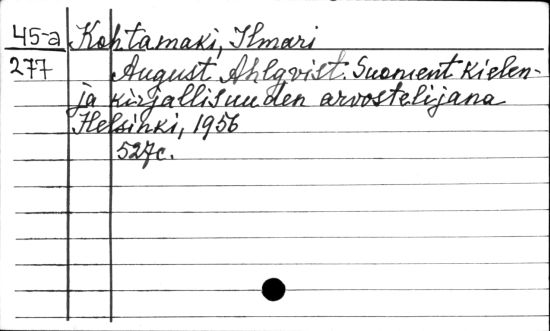 45-a Kohtamaki, Ilmari
277 August Ahlqvist. Suoment Kielen-
ja kirjallisuuden arvostelijana
Helsinki, 1956
527c.